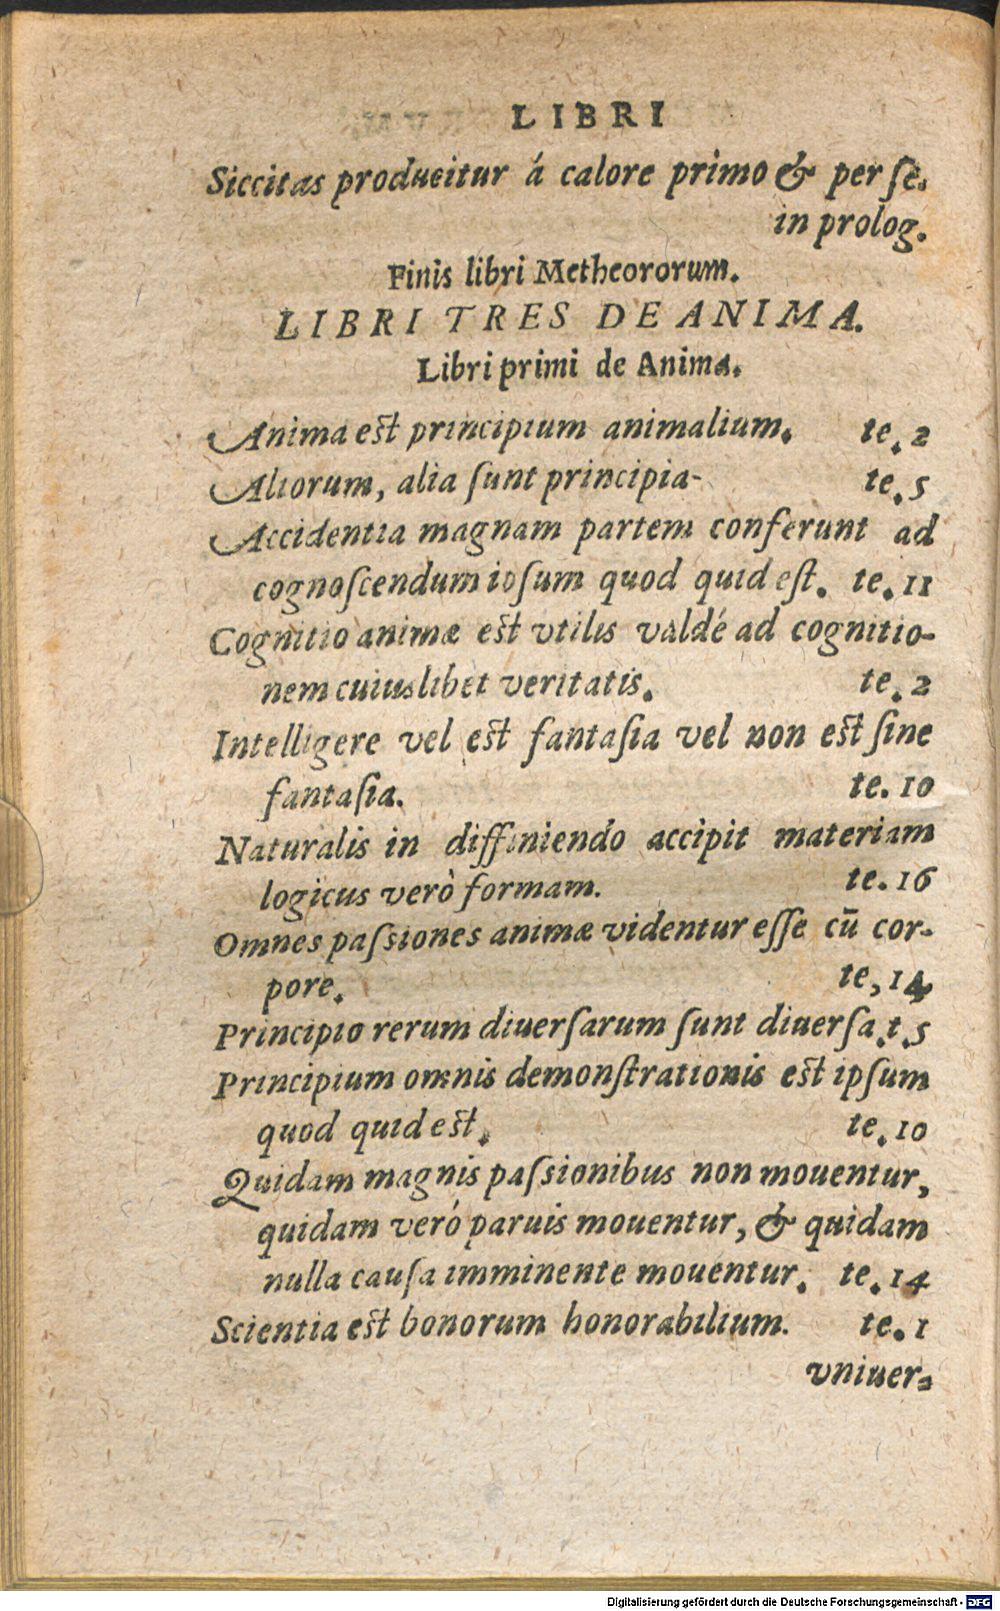 LIBRI
Siccitas produeitur á calore primo & per ſe.
in prolog.
Finis libri Metheororum.
LIBRI TRES DE ANIMA.
Libri primi de Anima.
Anima eſt principium animalium. te. 2
Aliorum, alia ſunt principia- te. 5
Accidentia magnam partem conferunt ad
cognoſcendum ioſum quod quid eſt. te. 11
Cognitio animæ eſt vtilis valdé ad cognitio-
nem cuiuslibet veritatis. te. 2
Intelligere vel eſt fantaſia vel non eſt ſine
fantaſia. te. 10
Naturalis in diffiniendo accipit materiam
logicus verò formam. te. 16
Omnes paſsiones animæ videntur eſſe cū cor-
pore. te, 14
Principio rerum diuerſarum ſunt diuerſa. t. 5
Principium omnis demonſtrationis eſt ipſum
quod quid eſt. te. 10
Quidam magnis paſsionibus non mouentur,
quidam veró paruis mouentur, & quidam
nulla cauſa imminente mouentur. te. 14
Scientia eſt bonorum honorabilium. te. 1
vniuer-
Digitalisierung gefördert durch die Deutsche Forschungsgemeinschaft - DFG